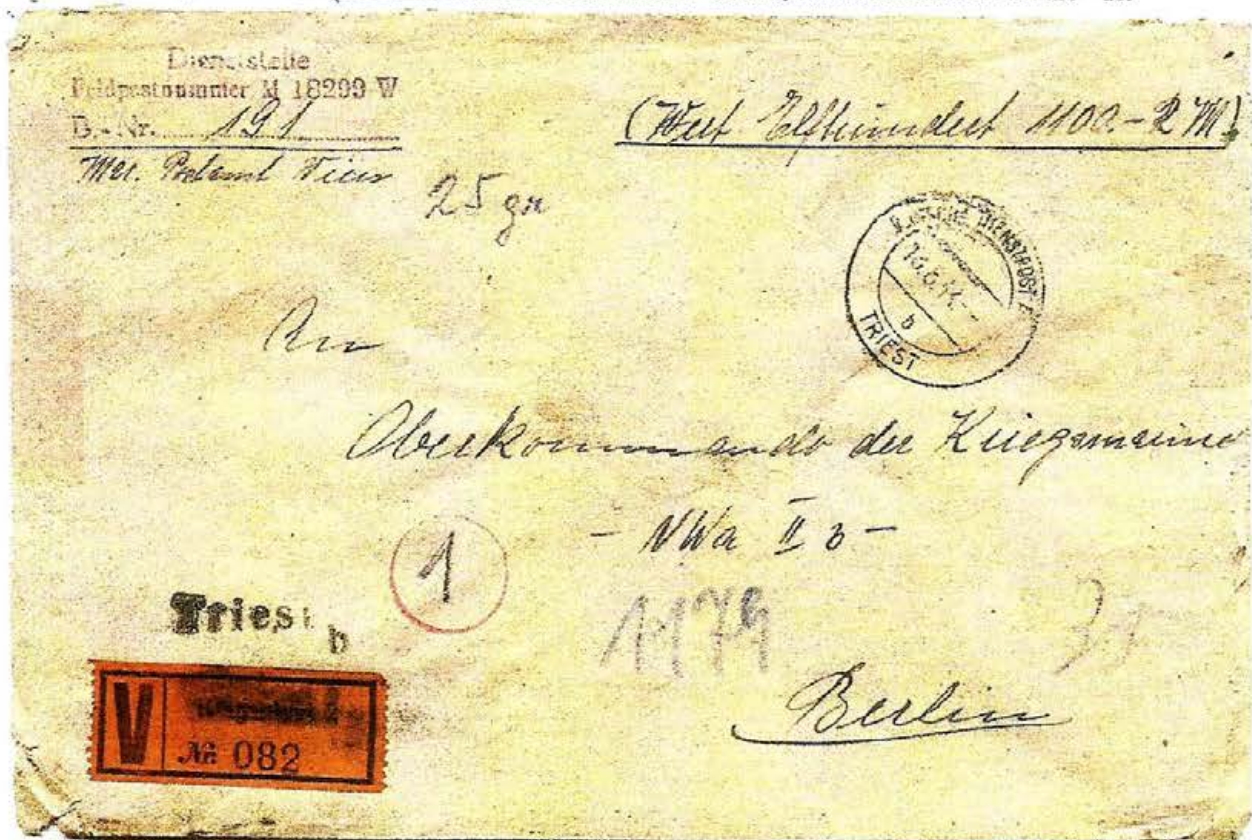 Dienststelle
Feldpostnummer M 18299 W
B.-Nr. 191
25 gr
(Wert Elfhundert 1100.- RM)
DIENSTPOST
16.6.44
b
TRIEST
An
Oberkommando der Kriegsmarine
- NWa II b -
1
1179
Triest
b
V
№ 082
Berlin